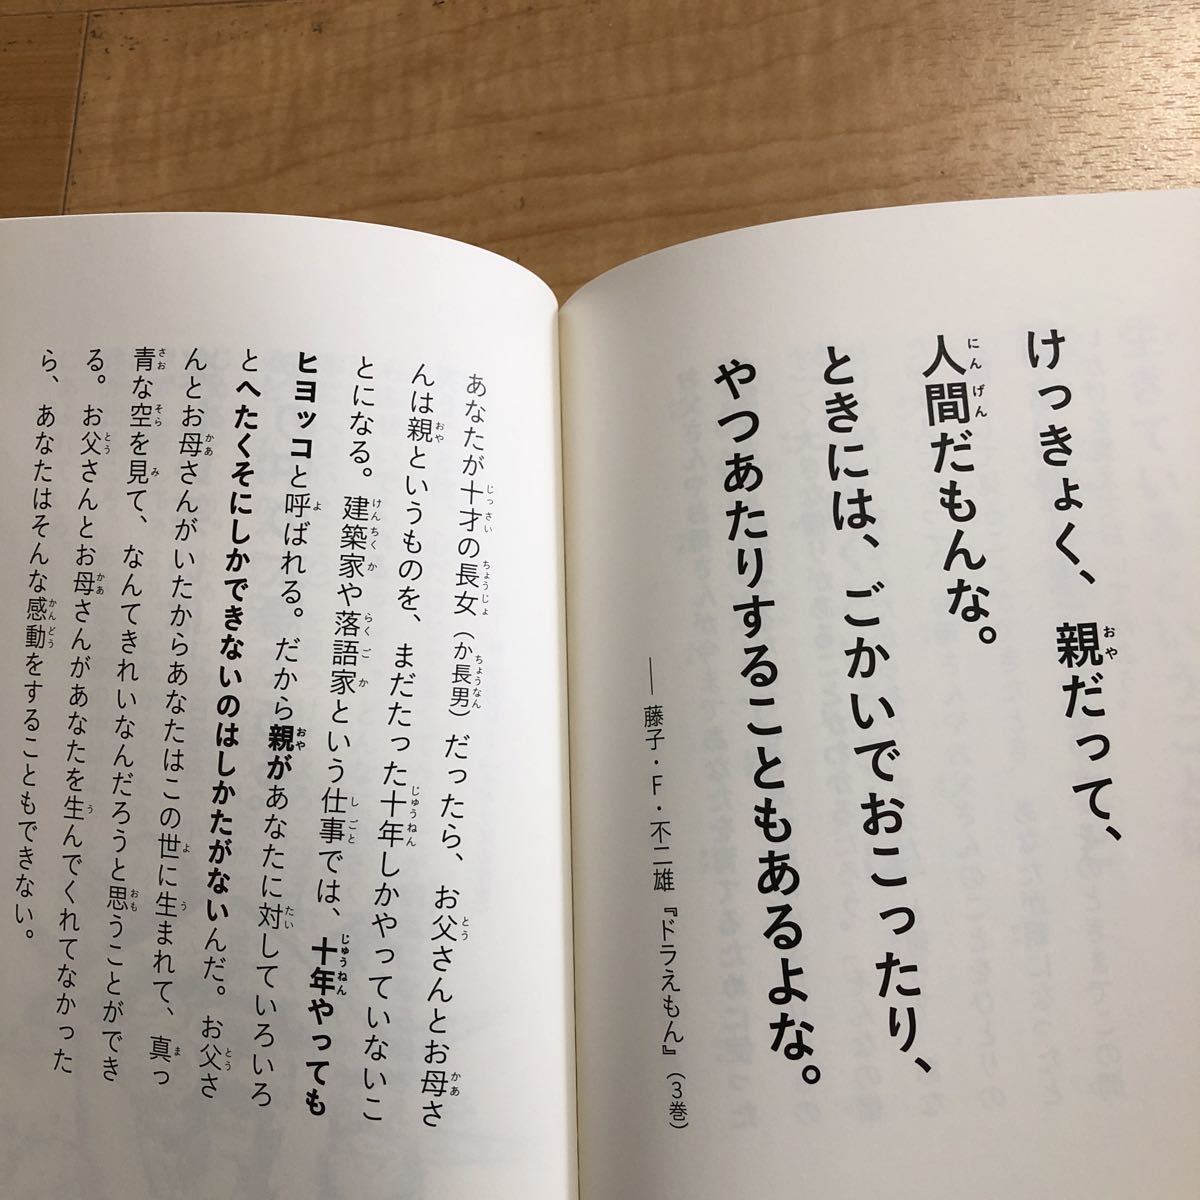 けっきょく、親だって、
人間だもんな。
ときには、ごかいでおこったり、
やつあたりすることもあるよな。
――藤子・F・不二雄『ドラえもん』(3巻)
あなたが十才の長女(か長男)だったら、お父さんとお母さ
んは親というものを、まだたった十年しかやっていないこ
とになる。建築家や落語家という仕事では、十年やっても
ヒヨッコと呼ばれる。だから親があなたに対していろいろ
とへたくそにしかできないのはしかたがないんだ。お父さ
んとお母さんがいたからあなたはこの世に生まれて、真っ
青な空を見て、なんてきれいなんだろうと思うことができ
る。お父さんとお母さんがあなたを生んでくれてなかった
ら、あなたはそんな感動をすることもできない。